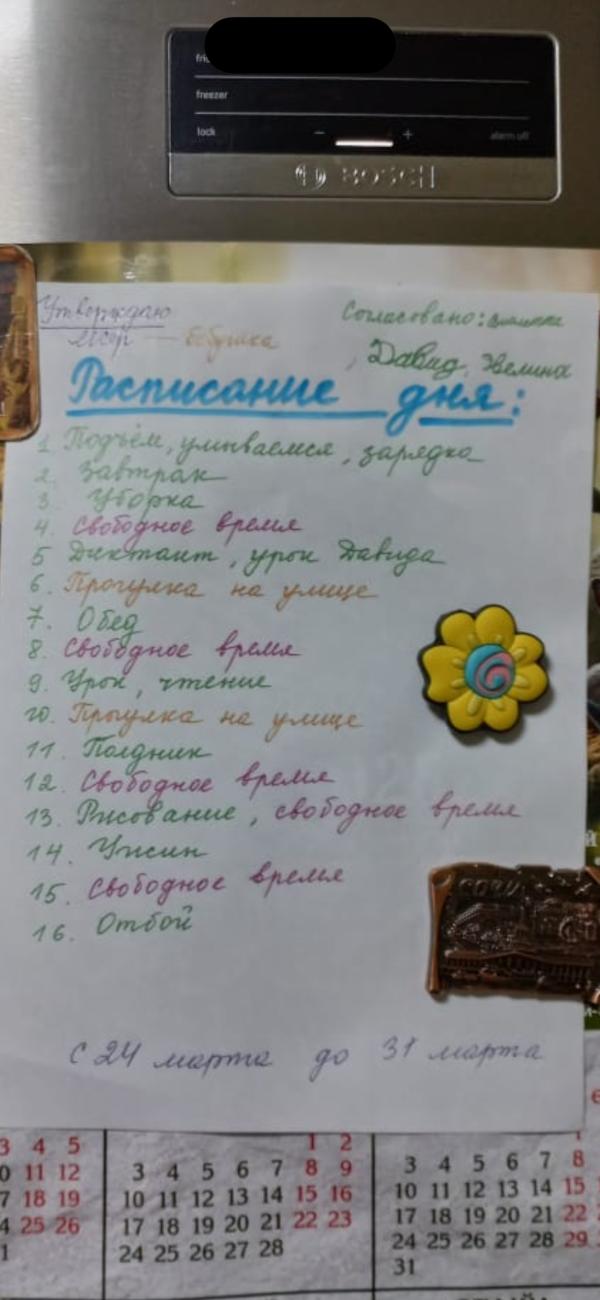 freezer
lock - + alarm off
BOSCH
Утверждаю
Согласовано:
— бабушка
, Давид, Эвелина
Расписание дня:
1 Подъём, умываемся, зарядка
2. Завтрак
3. Уборка
4. Свободное время
5 Диктант, урок Давида
6. Прогулка на улице
7. Обед
8. Свободное время
9. Урок, чтение
10. Прогулка на улице
11. Полдник
12. Свободное время
13. Рисование, свободное время
14. Ужин
15. Свободное время
16. Отбой
с 24 марта до 31 марта
3 4 5 1 2 1
11 12 3 4 5 6 7 8 9 3 4 5 6 7 8
18 19 10 11 12 13 14 15 16 10 11 12 13 14 15
25 26 17 18 19 20 21 22 23 17 18 19 20 21 22
24 25 26 27 28 24 25 26 27 28 29
31